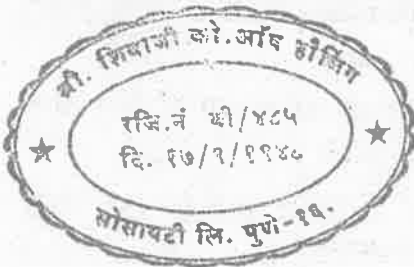 श्री. शिवाजी को. ऑप हौसिंग
रजि.नं बी/४८५
दि. १७/२/१९४८
सोसायटी लि. पुणे-१६.